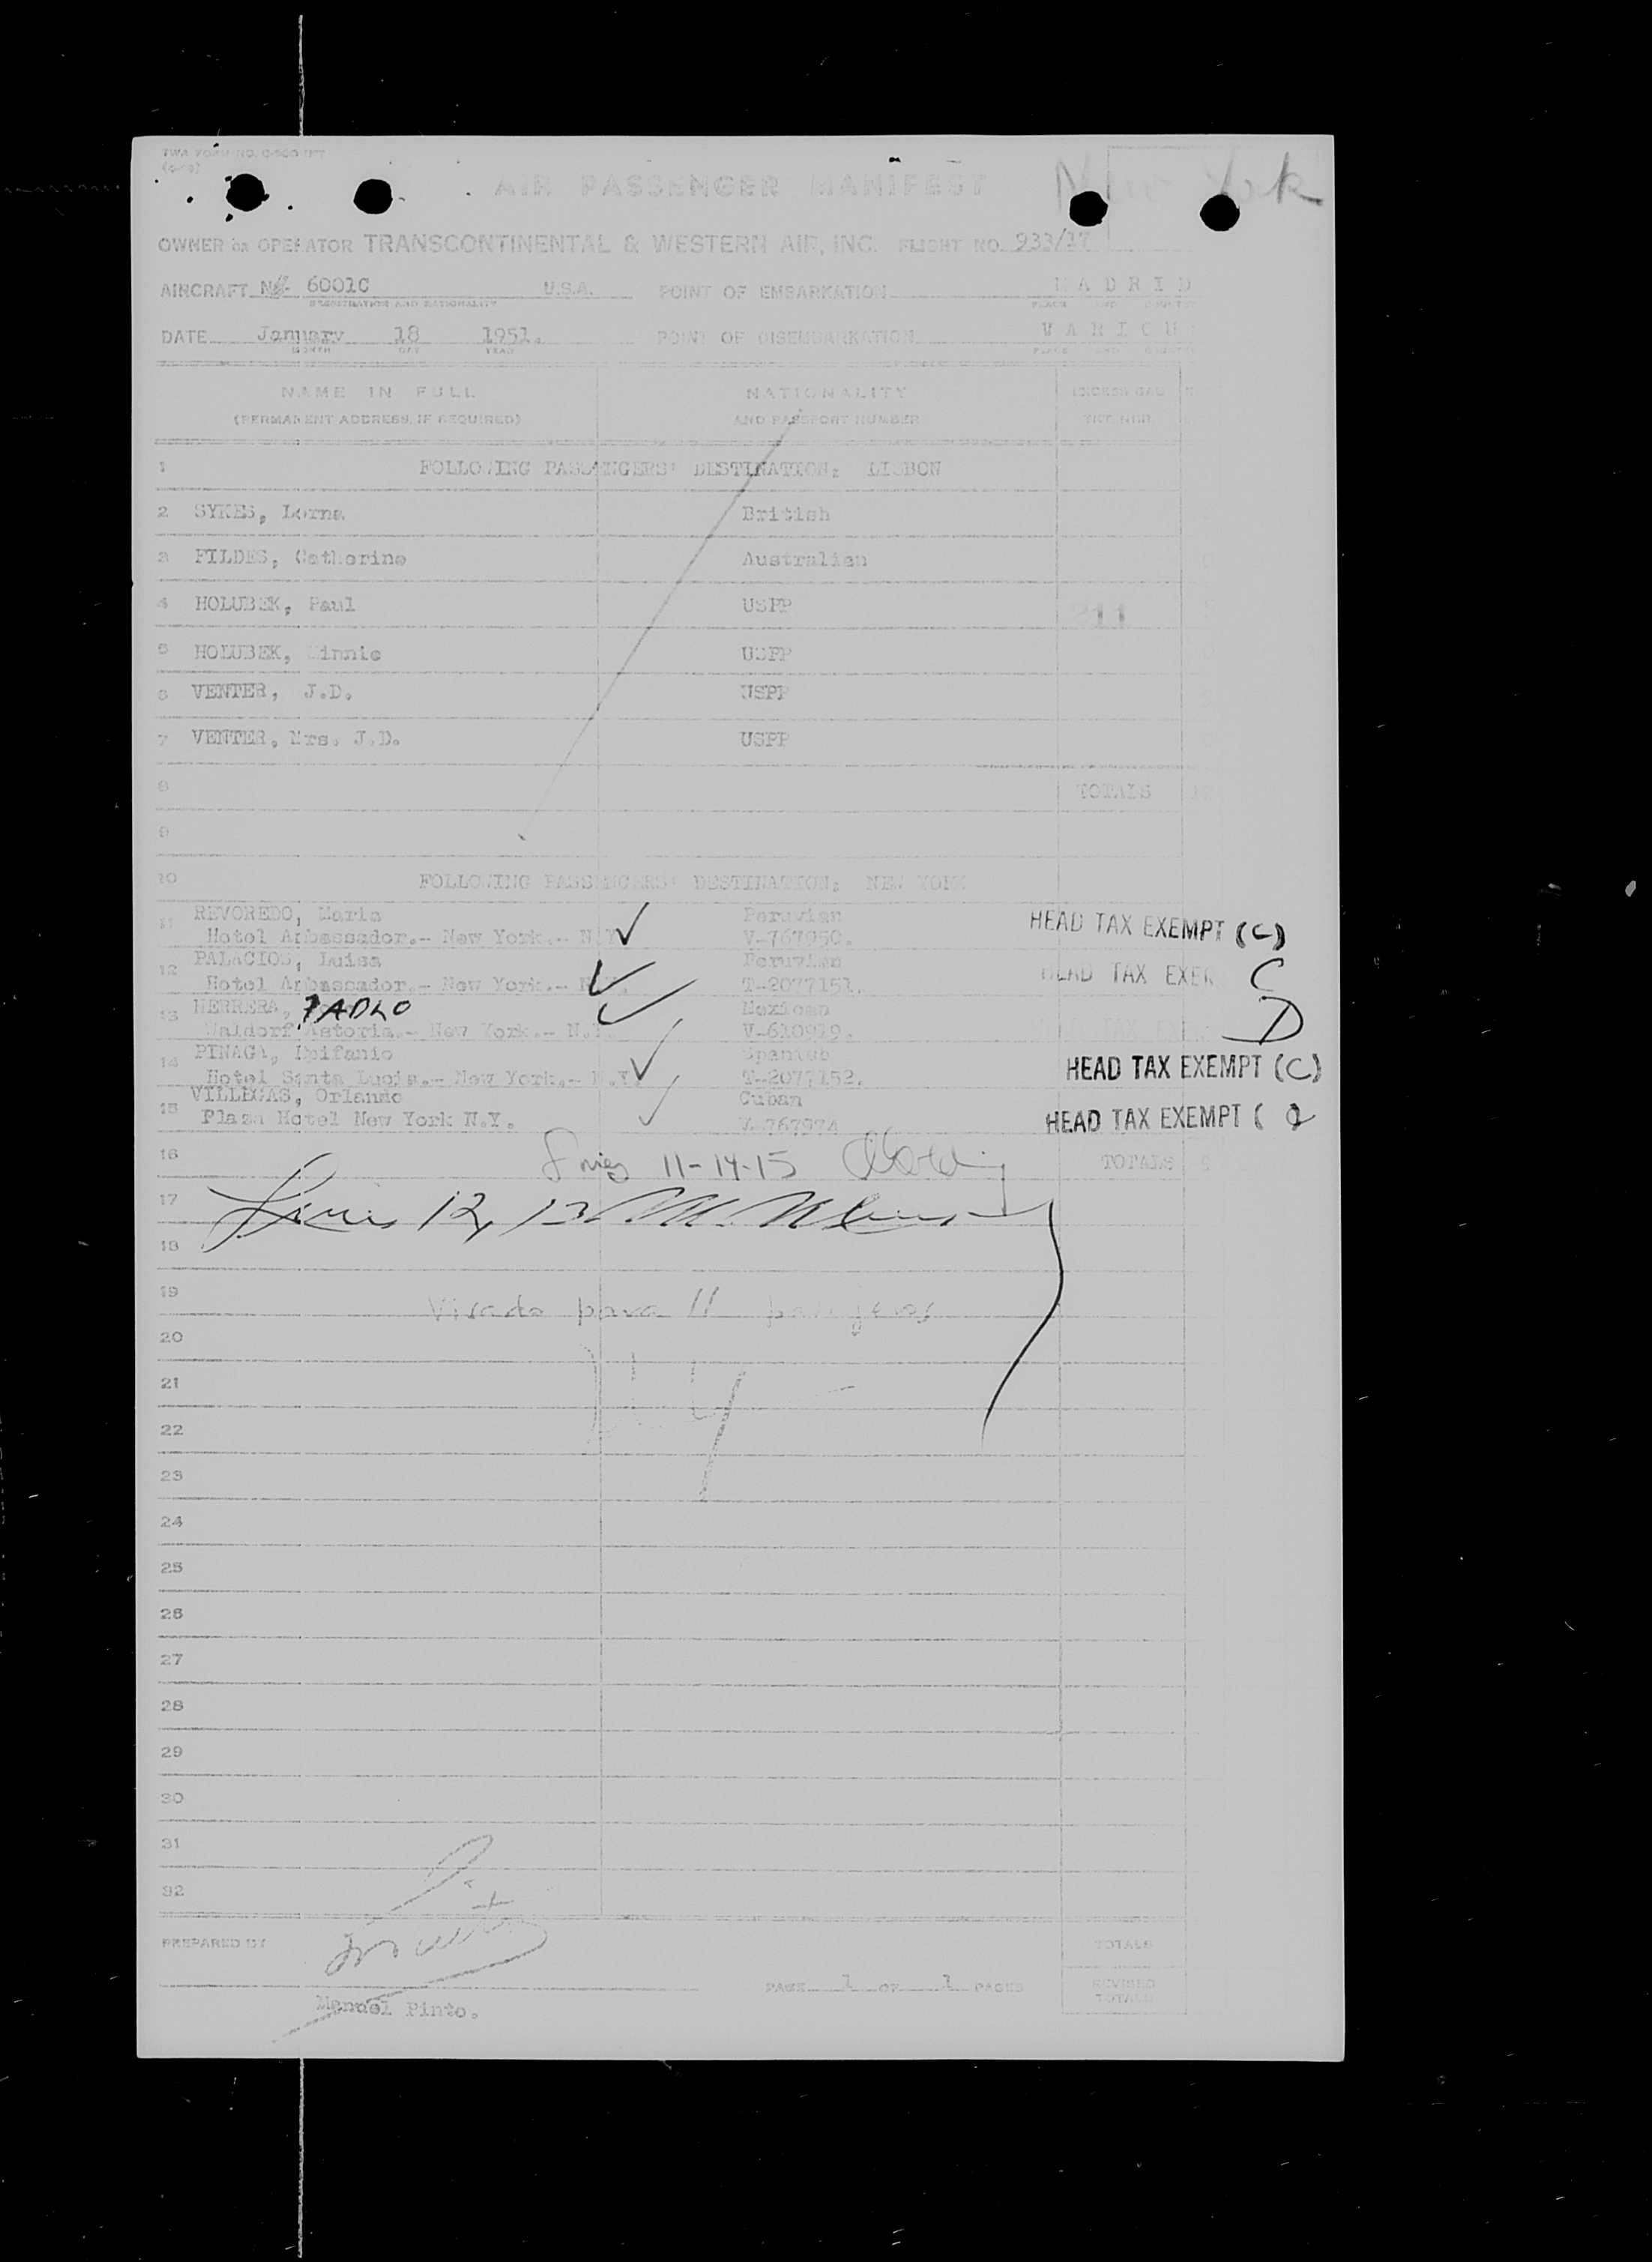 AIR PASSENGER MANIFEST
New York
OWNER OR OPERATOR TRANSCONTINENTAL & WESTERN AIR, INC. FLIGHT NO. 933/17
AIRCRAFT 6001C U.S.A. POINT OF EMBARKATION MADRID
REGISTRATION AND NATIONALITY PLACE AND COUNTRY
DATE January 18 1951. POINT OF DISEMBARKATION VARIOUS
MONTH DAY YEAR PLACE AND COUNTRY
NAME IN FULL NATIONALITY
(PERMANENT ADDRESS, IF REQUIRED) AND PASSPORT NUMBER
1 FOLLOWING PASSENGERS' DESTINATION: LISBON
2 SYKES, Lorna British
3 FILDES, Catherine Australian
4 HOLUBEK, Paul USPP 11
5 HOLUBEK, Minnie USPP
6 VENTER, J.D. USPP
7 VENTER, Mrs. J.D. USPP
8 TOTALS
9
10 FOLLOWING PASSENGERS' DESTINATION: NEW YORK
11 REVOREDO, Maria Peruvian
Hotel Ambassador.- New York.- N.Y. V-767950. HEAD TAX EXEMPT (C)
12 PALACIOS, Luisa Peruvian
Hotel Ambassador.- New York.- N.Y. T-2077151. HEAD TAX EXEM C
13 HERRERA, PABLO Mexican
Waldorf Astoria.- New York.- N.Y. V-610919. TAX D
14 PINAGA, Epifanio Spanish
Hotel Santa Lucia.- New York.- N.Y. T-2077152. HEAD TAX EXEMPT (C)
15 VILLEGAS, Orlando Cuban
Plaza Hotel New York N.Y. V-767974 HEAD TAX EXEMPT (
16 11-14-15 TOTALS
17 12, 13
18
19 Visado para 11 pasajeros
20
21
22
23
24
25
26
27
28
29
30
31
32
PREPARED BY TOTALS
PAGE 1 OF 1 PAGES REVISED TOTALS
Manuel Pinto.